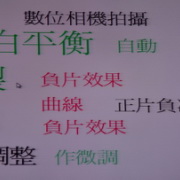 數位相機拍攝
白平衡 自動
負片效果
曲線 正片負
負片效果
調整 作微調